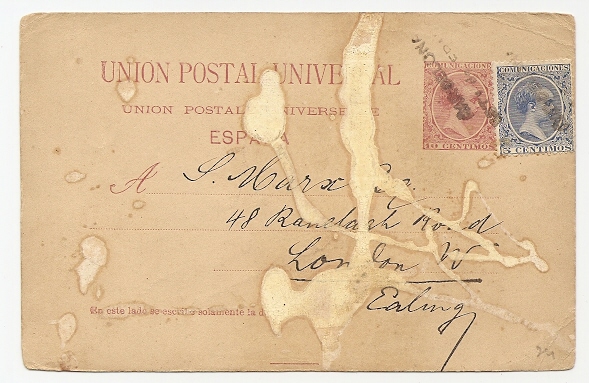 UNION POSTAL UNIVERSAL
UNION POSTALE UNIVERSELLE
ESPAÑA
COMUNICACIONES
10 CENTIMOS
COMUNICACIONES
5 CENTIMOS
A S. Marx Esq.
48 Road
London W
Ealing
En este lado se escribe solamente la d